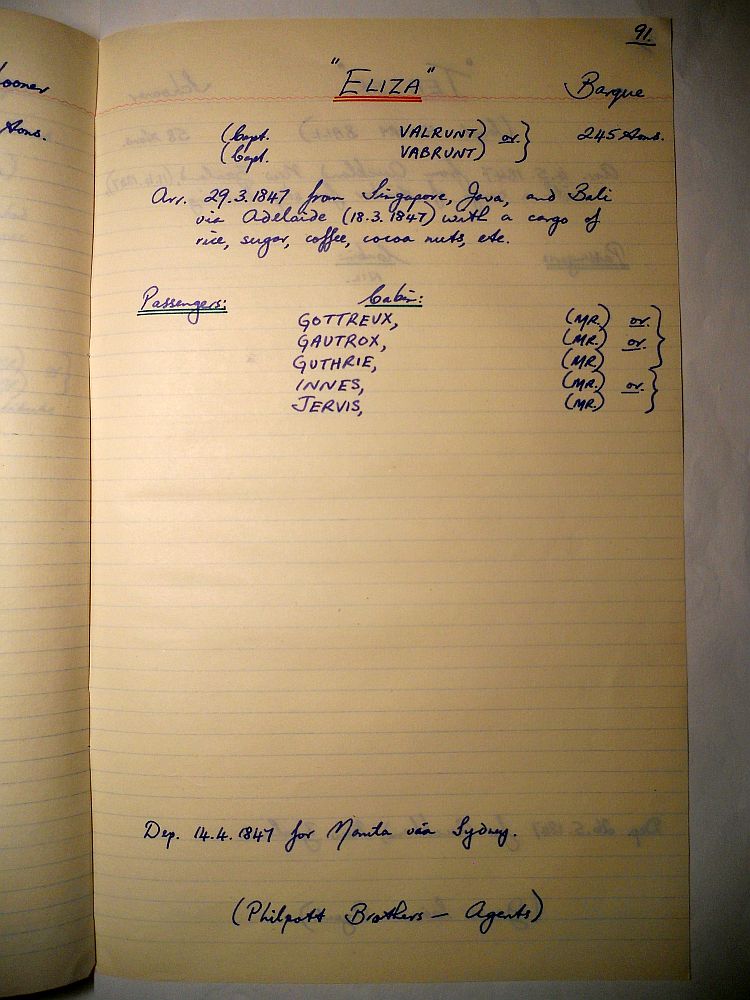 91.
"ELIZA" Barque
(Capt. VALRUNT) or } 245 tons.
(Capt. VABRUNT)
Arr. 29.3.1847 from Singapore, Java, and Bali
via Adelaide (18.3.1847) with a cargo of
rice, sugar, coffee, cocoa nuts, etc.
Passengers: Cabin:
GOTTREUX, (MR.) or. }
GAUTROX, (MR.) or.
GUTHRIE, (MR)
INNES, (MR.) or. }
JERVIS, (MR.)
Dep. 14.4.1847 for Manila via Sydney.
(Philpott Brothers - Agents)
tons.